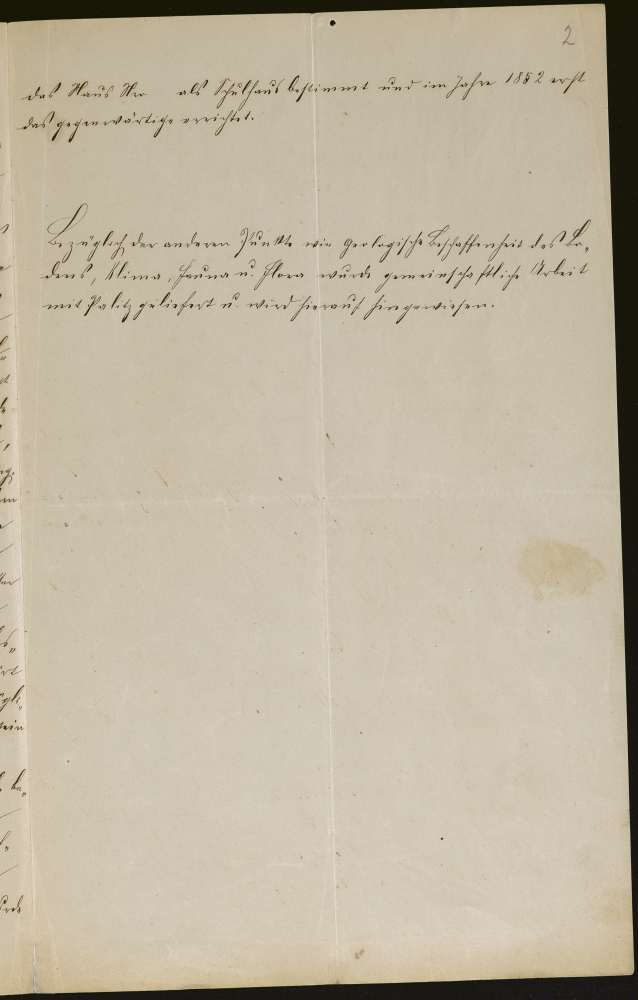 2
das Haus Nro als Schulhaus bestimmt und im Jahre 1852 erst
das gegenwärtige errichtet.
Bezüglich der anderen Punkte wie geologische Beschaffenheit des Bo-
dens, Klima, Fauna u. Flora wurde gemeinschaftliche Arbeit
mit Palitz geliefert u. wird hierauf hingewiesen.